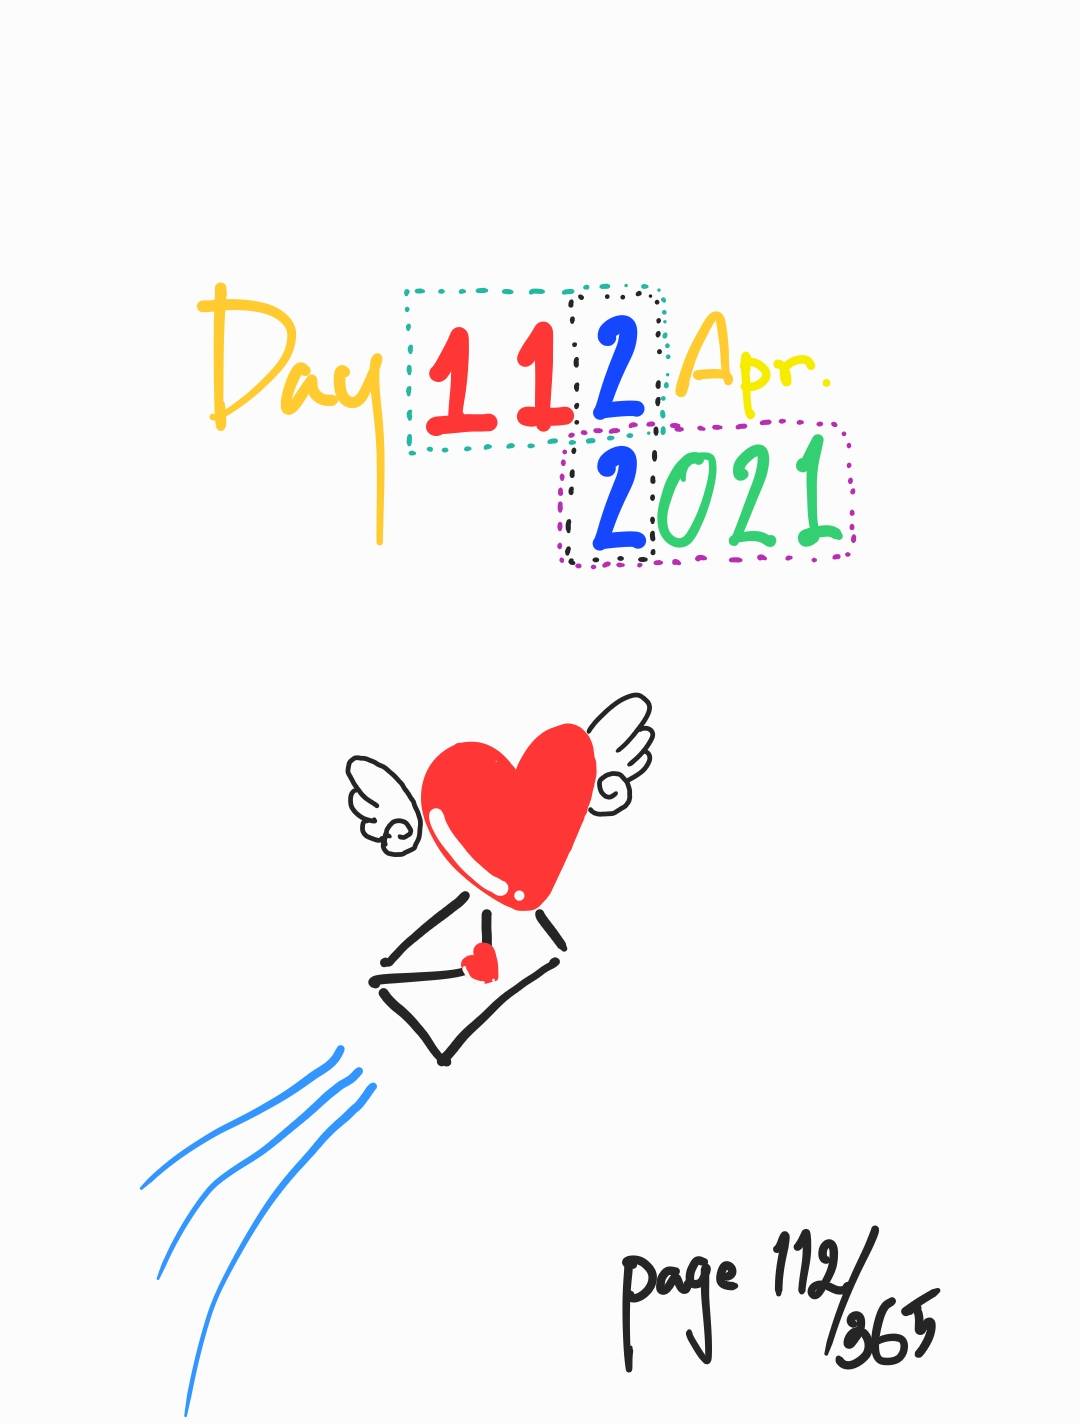 Day 112 Apr.
2021
page 112/365